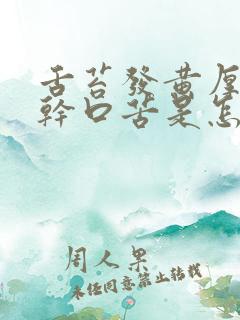 舌苔發黄厚
幹口苦是怎
周人果
未經同意禁止轉載